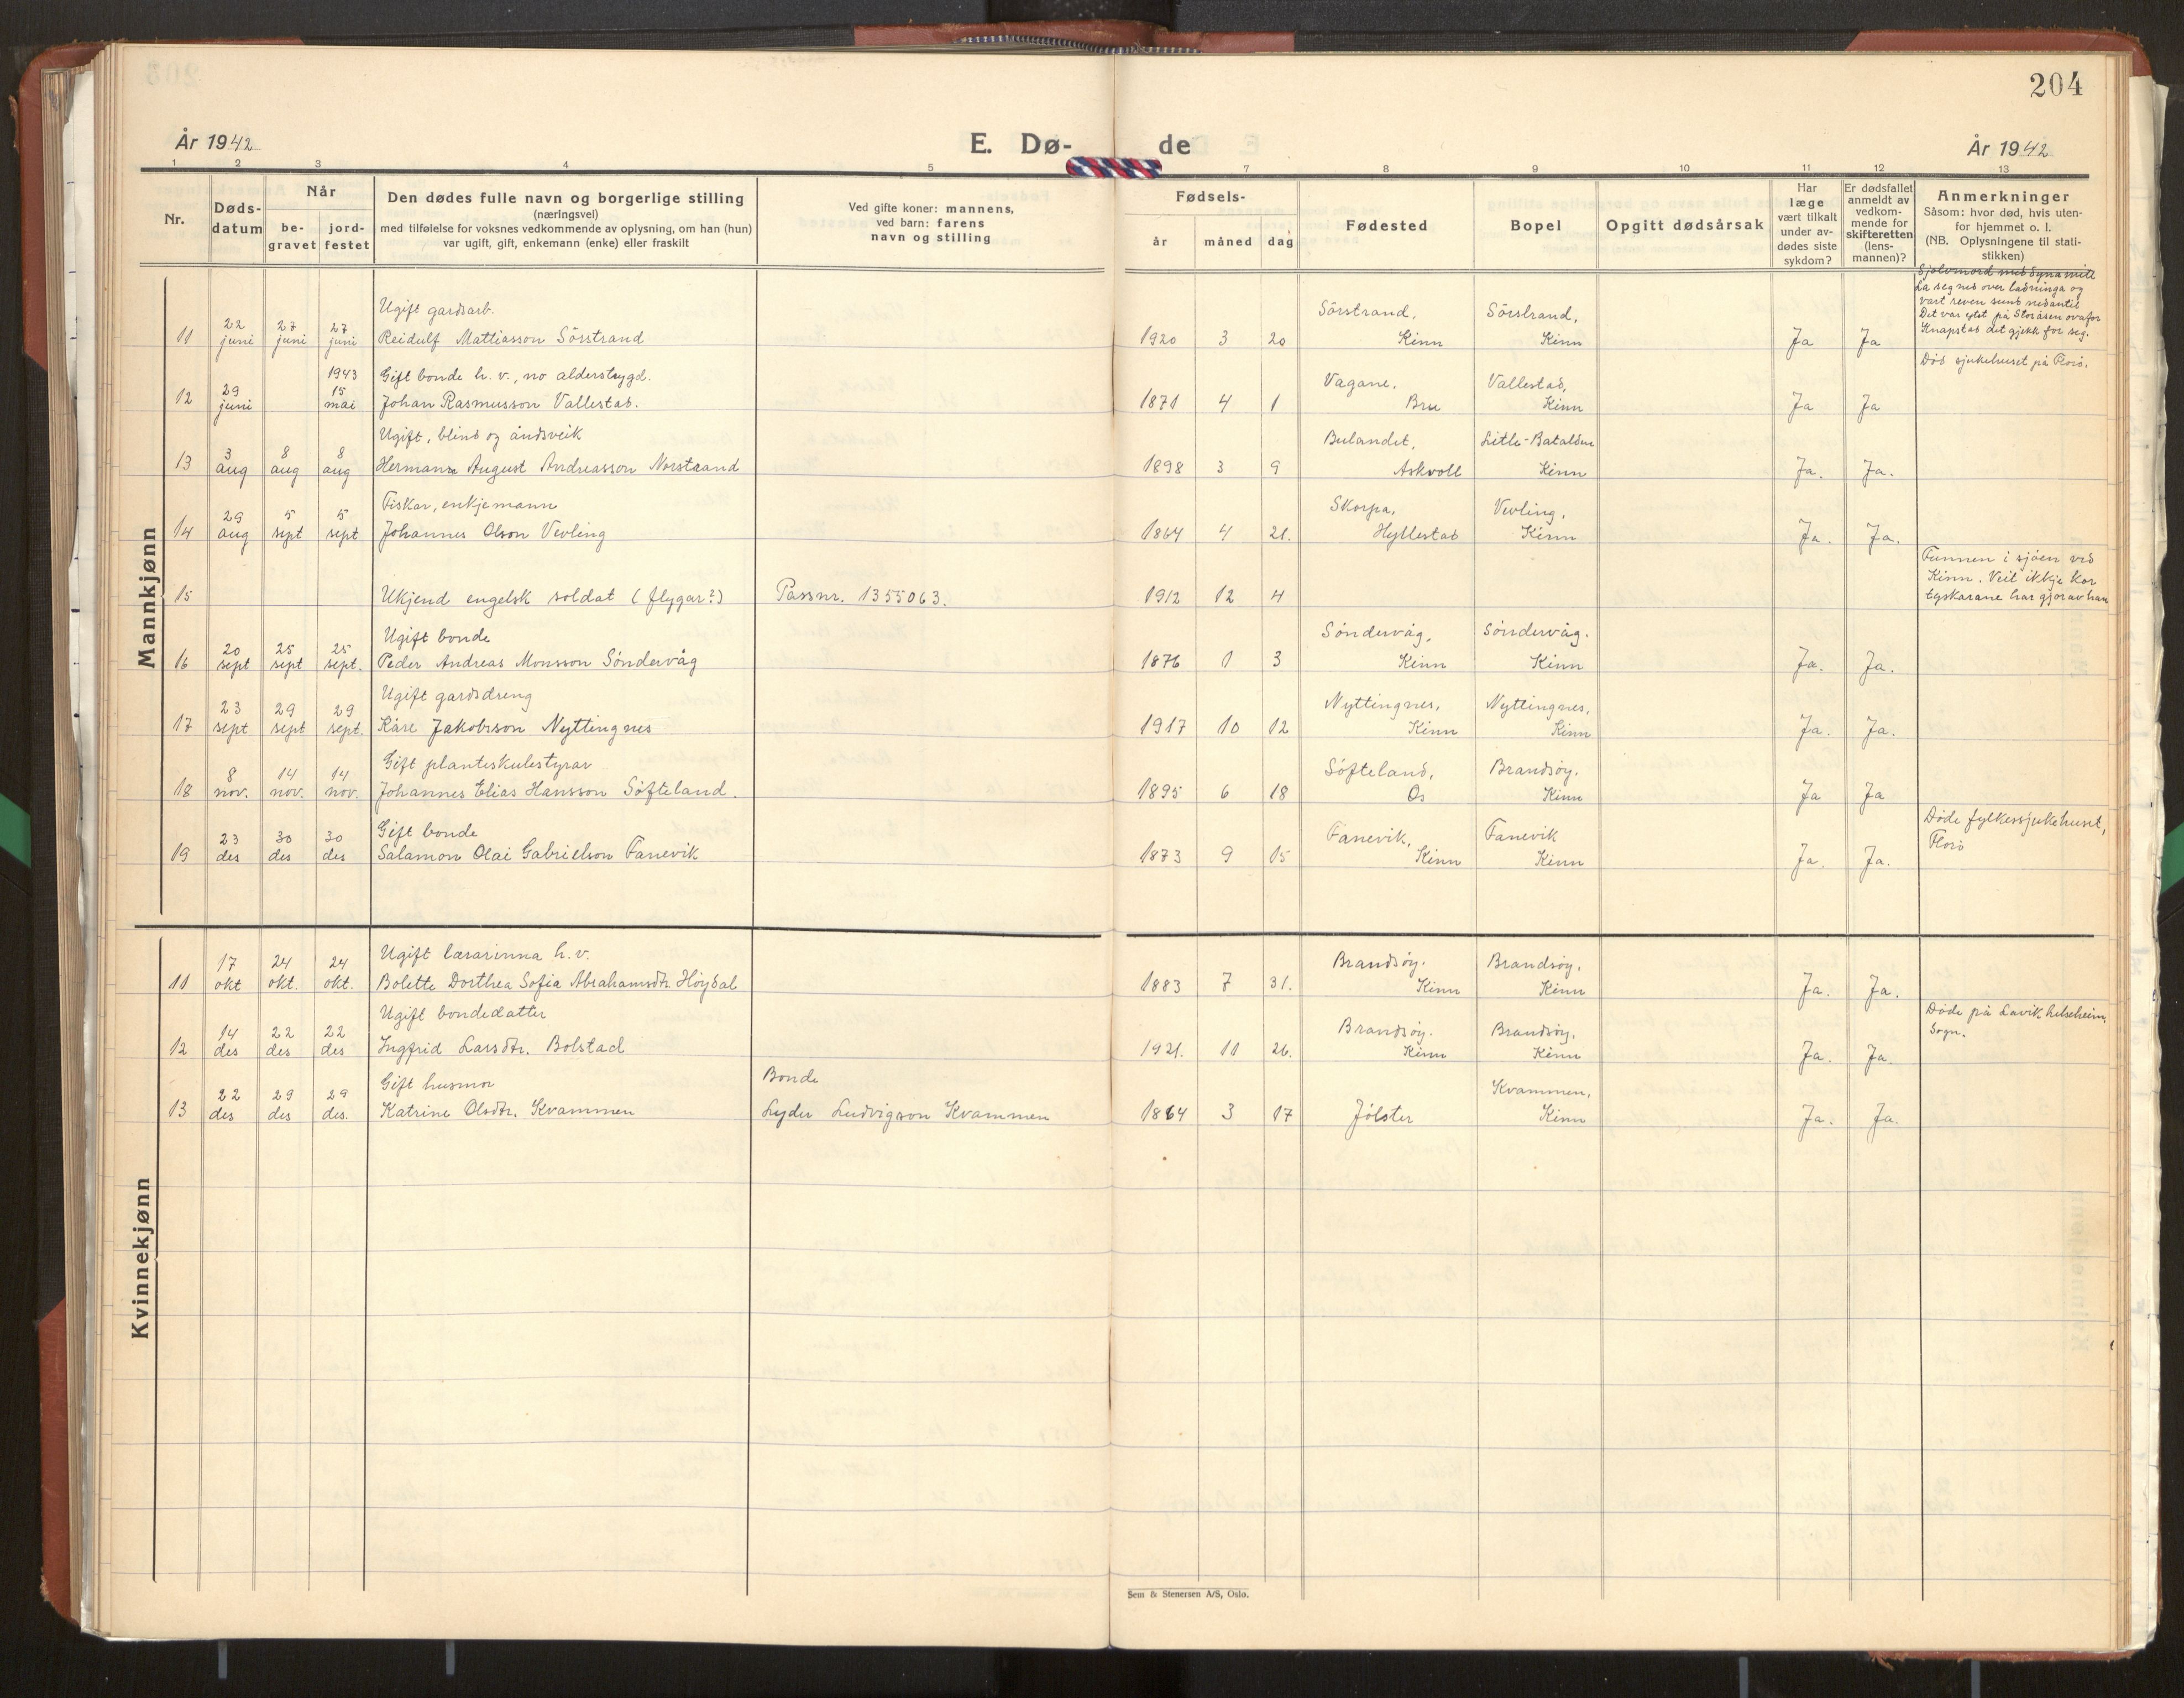 204
År 1942
E. Dø-
de
År 1942
1 2 3 4 5 7 8 9 10 11 12 13
Nr.
Døds-
datum
Når
be-
gravet
jord-
festet
Den dødes fulle navn og borgerlige stilling
(næringsvei)
med tilføielse for voksnes vedkommende av oplysning, om han (hun)
var ugift, gift, enkemann (enke) eller fraskilt
Ved gifte koner: mannens,
ved barn: farens
navn og stilling
Fødsels-
år måned dag
Fødested
Bopel
Opgitt dødsårsak
Har
læge
vært tilkalt
under av-
dødes siste
sykdom?
Er dødsfallet
anmeldt av
vedkom-
mende for
skifteretten
(lens-
mannen)?
Anmerkninger
Såsom: hvor død, hvis uten-
for hjemmet o. l.
(NB. Oplysningene til stati-
stikken)
Mannkjønn
Sjølvmord med dynamitt
La seg ned over ladninga og
vart reven sund nedantil
Det var ytst på Storåsen ovafor
Knapstad det gjekk for seg.
Ugift gardsarb. Sörstrand, Sörstrand,
11 22 juni 27 juni 27 juni Reidulf Mattiasson Sörstrand 1920 3 20 Kinn Kinn Ja Ja
Död sjukehuset på Florö.
1943 Gift bonde h. v., no alderstrygd. Vagane, Vallestad,
12 29 juni 15 mai Johan Rasmusson Vallestad. 1871 4 1 Bru Kinn Ja Ja
Ugift, blind og åndsveik Bulandet, Litle-Batalden
13 3 aug 8 aug 8 aug Hermann August Andreasson Norstrand 1898 3 9 Askvoll Kinn Ja. Ja.
Fiskar, enkjemann Skorpa, Vevling,
14 29 aug 5 sept 5 sept Johannes Olson Vevling 1864 4 21. Hyllestad Kinn Ja. Ja.
Funnen i sjöen ved
Kinn. Veit ikkje kor
tyskarane har gjor av han
15 Ukjend engelsk soldat (flygar?) Passnr. 1355063. 1912 12 4
Ugift bonde Söndervåg, Söndervåg.
16 20 sept 25 sept 25 sept. Peder Andreas Monsson Söndervåg 1876 1 3 Kinn Kinn Ja. Ja.
Ugift gardsdreng Nyttingnes, Nyttingnes,
17 23 sept 29 sept 29 sept. Kåre Jakobsson Nyttingnes 1917 10 12 Kinn Kinn Ja. Ja.
Gift planteskulestyrar Söfteland, Brandsöy.
18 8 nov. 14 nov. 14 nov. Johannes Elias Hansson Söfteland. 1895 6 18 Os Kinn Ja Ja
Döde fylkessjukehuset,
Florö
Gift bonde Fanevik, Fanevik
19 23 des 30 des 30 des Salamon Olai Gabrielson Fanevik 1873 9 15 Kinn Kinn Ja. Ja.
Kvinnekjønn
Ugift lærarinna h. v. Brandsöy. Brandsöy,
11 17 okt 24 okt. 24 okt. Bolette Dorthea Sofia Abrahamsdtr. Höydal 1883 7 31. Kinn Kinn Ja. Ja.
Döde på Lavik helseheim,
Sogn.
Ugift bondedatter Brandsöy. Brandsöy,
12 14 des 22 des 22 des Ingfrid Larsdtr. Bolstad 1921. 11 26. Kinn Kinn Ja. Ja
Gift husmor Bonde Kvammen,
13 22 des 29 des 29 des. Katrine Olsdtr. Kvammen Lyder Ludvigson Kvammen 1864 3 17 Jölster Kinn Ja. Ja.
Sem & Stenersen A/S, Oslo.